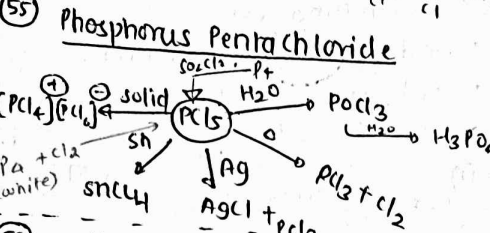 55
Phosphorus Pentachloride
SO2Cl2
P4
[PCl4]⊕ [PCl6]⊖
solid
PCl5
H2O
POCl3
H2O
H3PO4
P4 + Cl2
(white)
Sn
SnCl4
Ag
AgCl + PCl3
Δ
PCl3 + Cl2
Cl